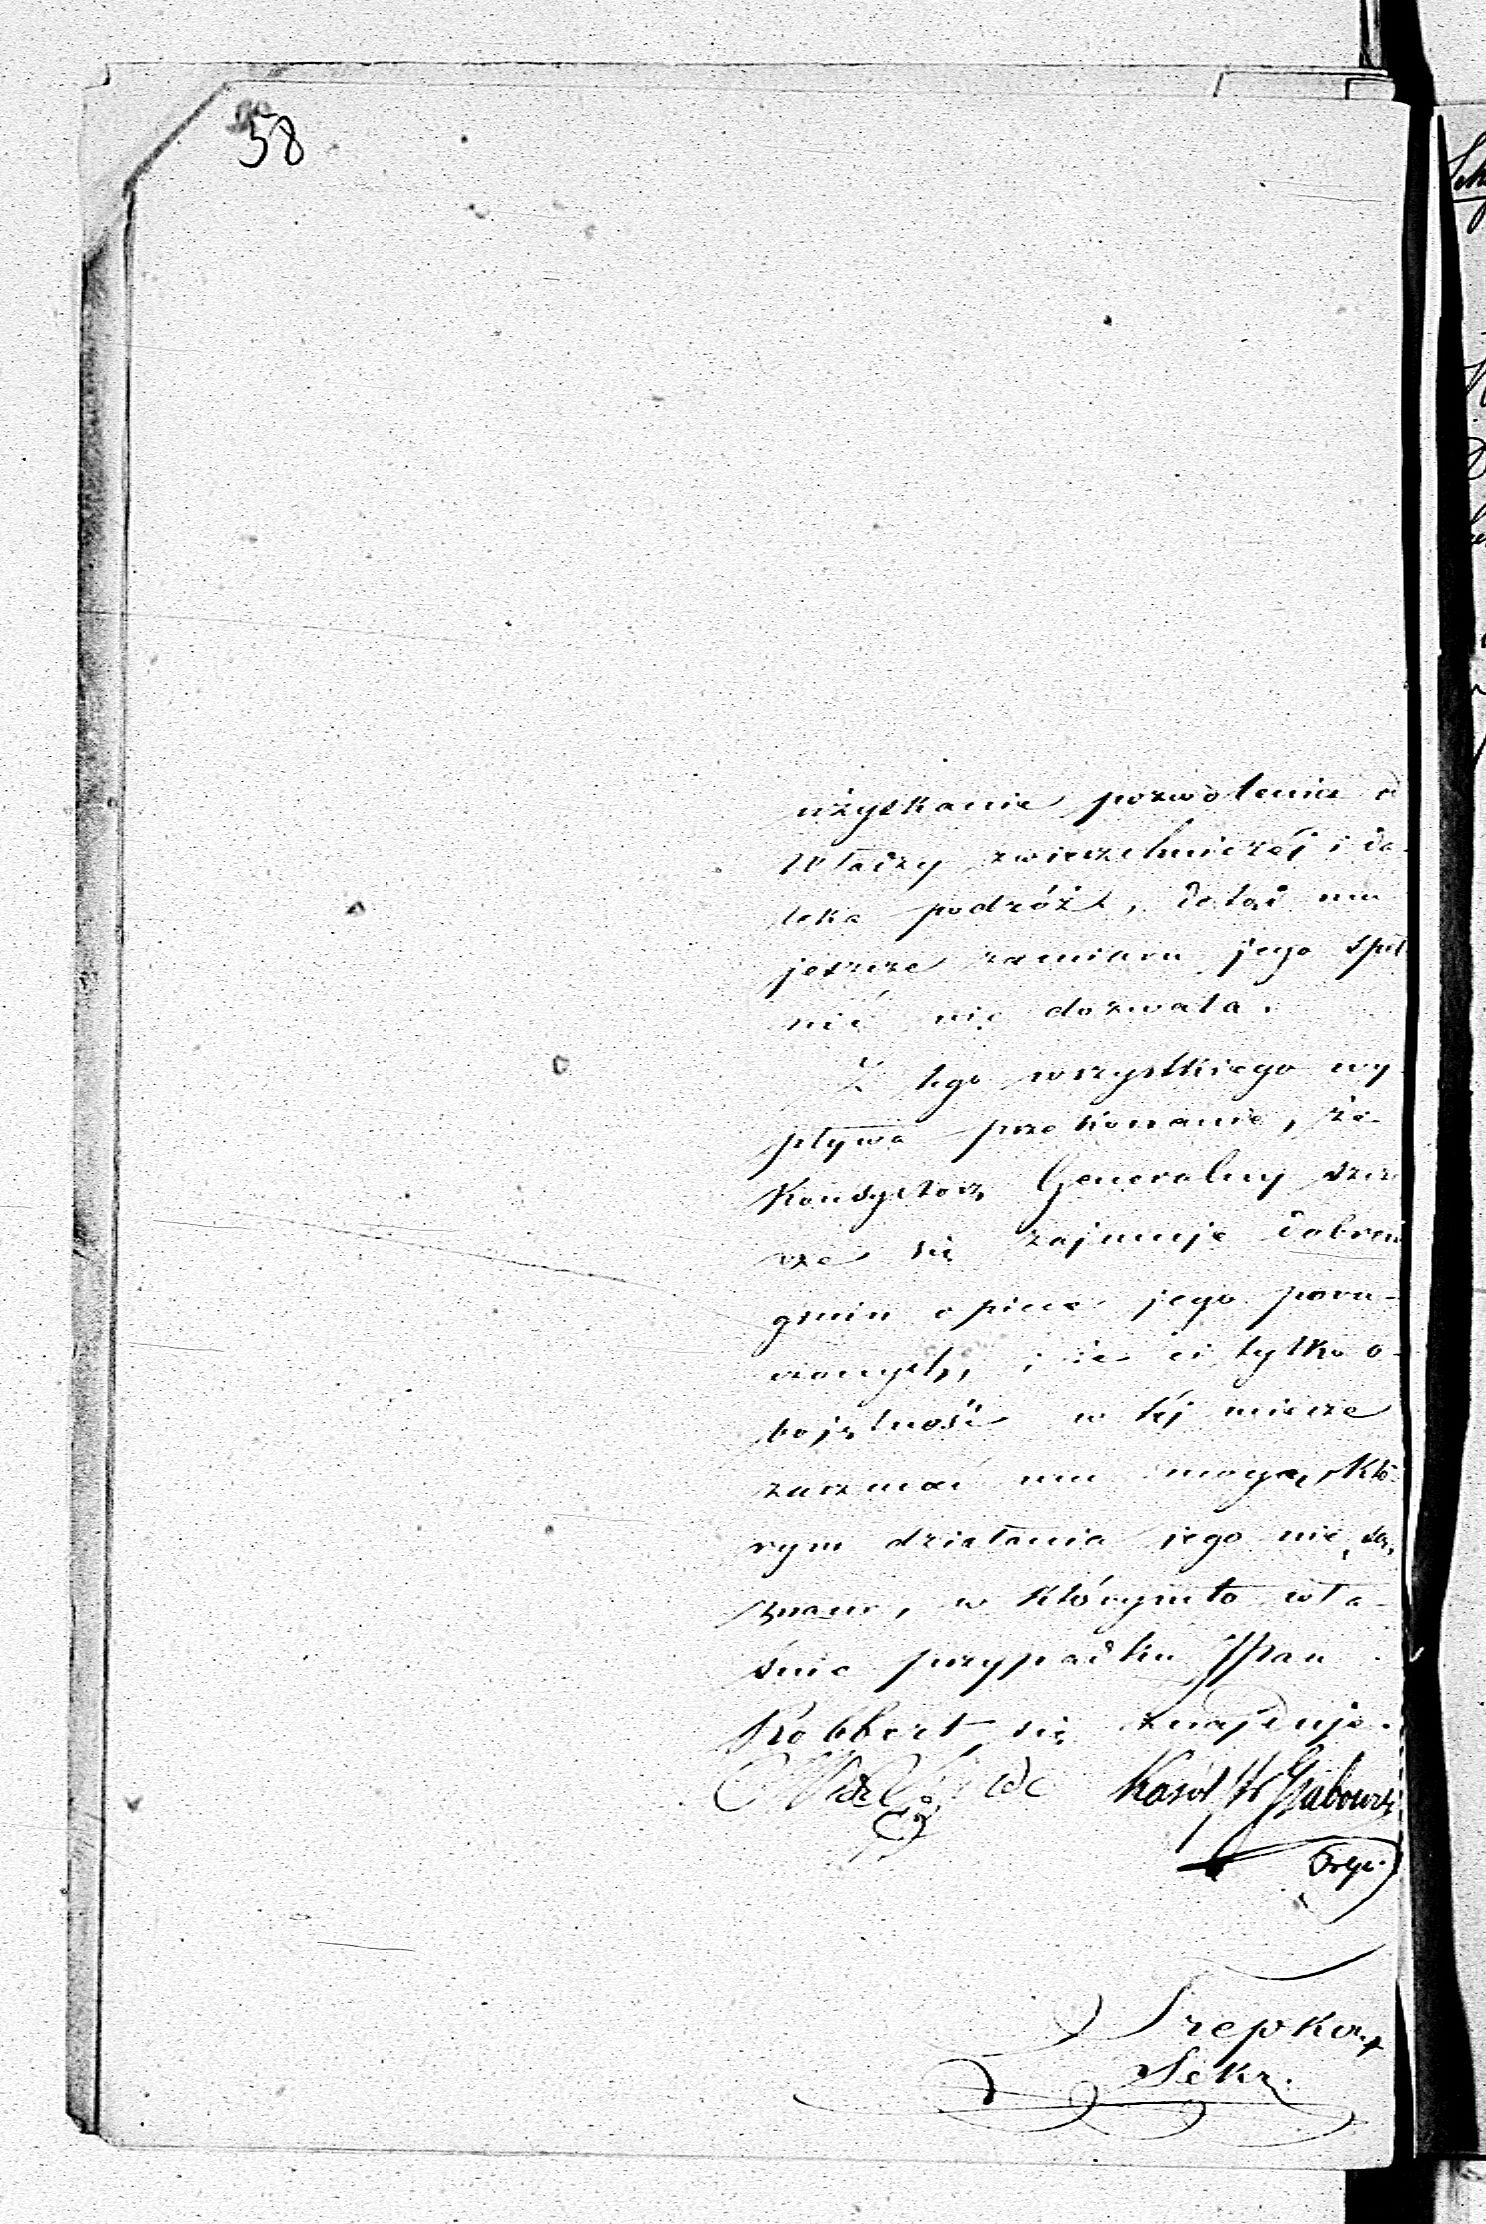 58
użyskanie pozwolenia o
Władzy zwierzchniczéj i da-
leka podróż, dotąd mu
jeszcze zamiaru jego speł
nić nie dozwala.
Z tego wszystkiego wy
pływa przekonanie, że
Konsystorz Generalny szcze
rze się zajmuje dobrem
gmin opiece jego poru-
czonych, i że ci tylko o-
bojętność w téj mierze
zarzucać mu mogą, któ
rym działania jego nie są
znane, w którymto wła-
śnie przypadku JPan
Robbert się znajduje.
Karól
Sekr.